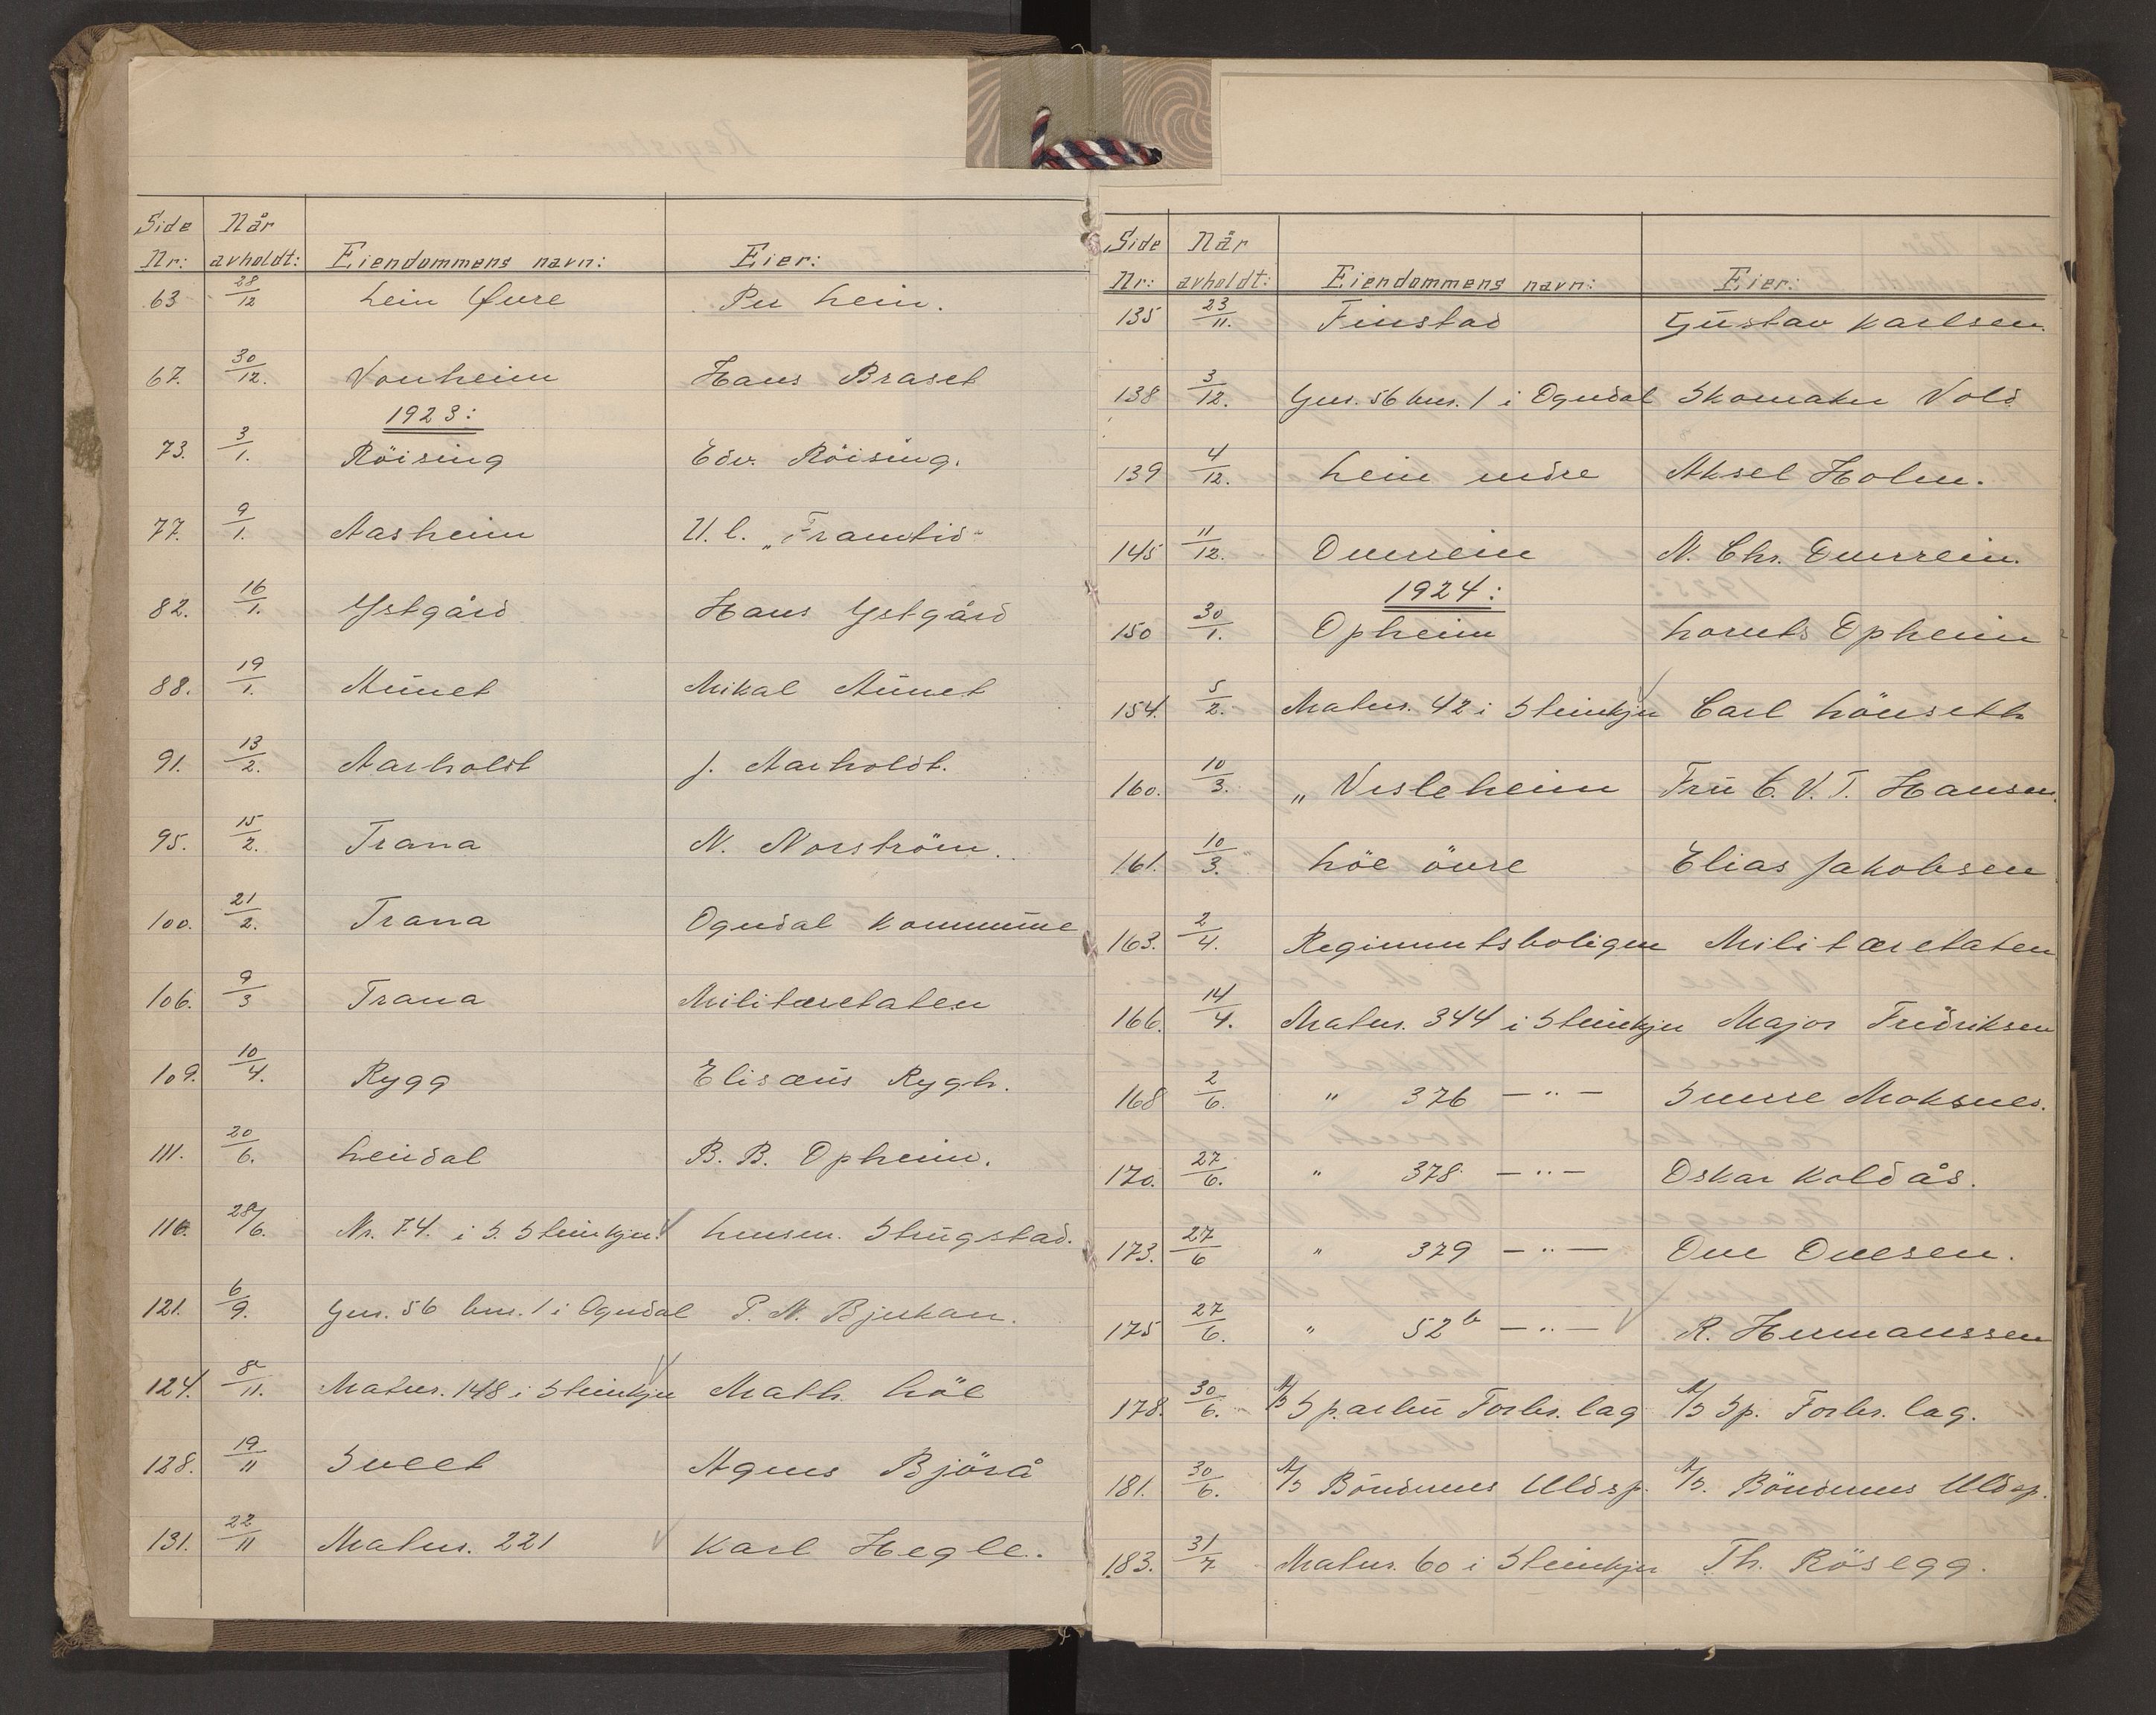 Side Når
Nr: avholdt: Eiendommens navn: Eier:
63 28/12 Lein Øvre Per Lein.
67. 30/12. Vonheim Hans Braset
1923:
73. 3/1. Röising Edv. Röising.
77. 9/1. Aasheim U.l. „Framtid"
82. 16/1. Ystgård Hans Ystgård
88. 19/1. Aunet Mikal Aunet
91. 13/2. Aarholdt J. Aarholdt.
95. 15/2. Trana N. Norström.
100. 21/2. Trana Ogndal kommune
106. 9/3 Trana Militæretaten
109. 10/4. Rygg Elisæus Rygh.
111. 20/6. Leirdal B. B. Opheim.
116. 28/6. Nr. 74. i S. Steinkjer. Lensm. Skugstad.
121. 6/9. Gnr. 56 bnr. 1 i Ogndal P. N. Bjerkan.
124. 8/11. Matnr. 148 i Steinkjer Math. Löe
128. 19/11 Sveet Agnes Björå
131. 22/11 Matnr. 221 Karl Hegle.
Side Når
Nr: avholdt: Eiendommens navn: Eier:
135 23/11. Finstad Gustav Karlsen.
138 3/12. Gnr. 56 bnr. 1 i Ogndal Skomaker Vold
139 4/12. Lein nedre Aksel Holm.
145 11/12. Overrein N. Chr. Overrein.
1924:
150 30/1. Opheim Lorents Opheim
154. 5/2. Matnr. 42 i Steinkjer Carl Lönseth
160. 10/3. „ Vesleheim Fru C. V. T. Hansen.
161. 10/3. Löe övre Elias Jakobsen
163. 2/4. Regimentsboligen Militæretaten
166. 14/4. Matnr. 344 i Steinkjer Major Fredriksen
168 2/6. " 376 — " — Sverre Moksnes.
170. 27/6. " 378 — " — Oskar Koldås.
173. 27/6 " 379 — " — Ove Ovesen.
175 27/6. " 52b — " — R. Hermanssen
178. 30/6. A/S Sparbu Forbr. lag A/S Sp. Forbr. lag.
181. 30/6. A/S Böndernes Uldsp. A/S. Böndernes Uldsp.
183. 31/7 Matnr. 60 i Steinkjer Th. Rösegg.